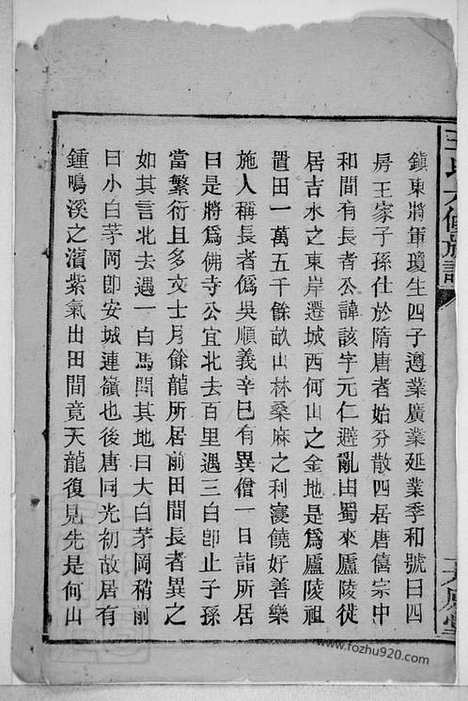 王氏六修族譜
鎮東將軍瓊生四子遵業廣業延業季和號曰四
房王家子孫仕於隋唐者始分散四居唐僖宗中
和間有長者公諱該字元仁避亂由蜀來廬陵徙
居吉水之東岸遷城西何山之金地是爲廬陵祖
置田一萬五千餘畝山林桑麻之利褒饒好善樂
施人稱長者僞吳順義辛巳有異僧一日詣所居
曰是將爲佛寺公宜北去百里遇三白卽止子孫
當繁衍且多文士月餘龍所居前田間長者異之
如其言北去遇一白馬問其地曰大白茅岡稍前
曰小白茅岡卽安城連嶺也後唐同光初故居有
鍾鳴溪之濱紫氣出田間竟天龍復見先是何山
www.fozhu920.com